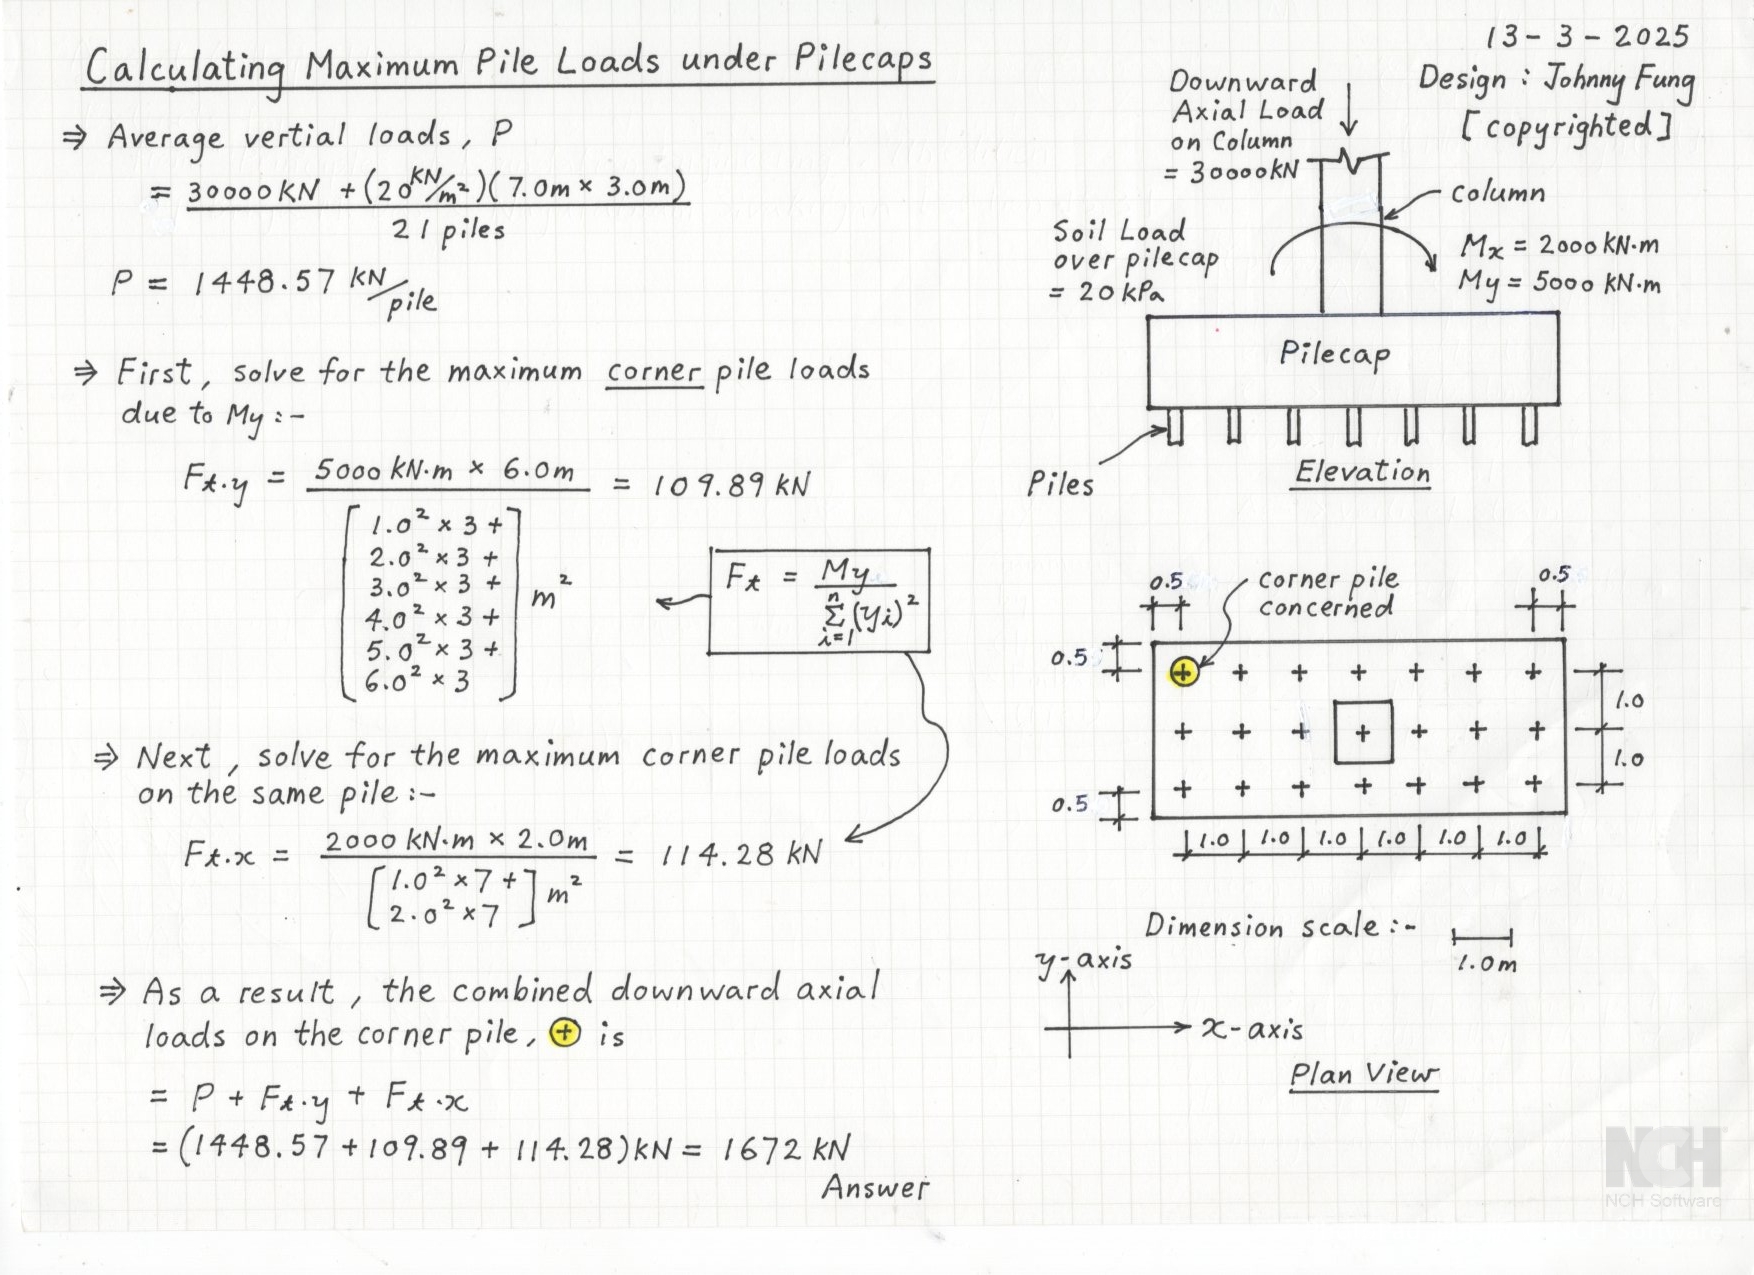 Calculating Maximum Pile Loads under Pilecaps
13-3-2025
Design : Johnny Fung
[copyrighted]
⇒ Average vertial loads, P
= 30000KN + (20 KN/m²)(7.0m × 3.0m)
21 piles
P = 1448.57 KN/pile
⇒ First, solve for the maximum corner pile loads
due to My :-
Ft.y = 5000 KN·m × 6.0m = 109.89 KN
[1.0² × 3 +
2.0² × 3 +
3.0² × 3 +
4.0² × 3 +
5.0² × 3 +
6.0² × 3] m²
Ft = My
n
Σ (yi)²
i=1
⇒ Next, solve for the maximum corner pile loads
on the same pile :-
Ft.x = 2000 KN·m × 2.0m = 114.28 KN
[1.0² × 7 +
2.0² × 7] m²
⇒ As a result, the combined downward axial
loads on the corner pile, + is
= P + Ft.y + Ft.x
= (1448.57 + 109.89 + 114.28)KN = 1672 KN
Answer
Downward
Axial Load
on Column
= 30000KN
column
Soil Load
over pilecap
= 20 kPa
Mx = 2000 KN·m
My = 5000 KN·m
Pilecap
Piles
Elevation
0.5
corner pile
concerned
0.5
0.5
1.0
1.0
0.5
1.0 1.0 1.0 1.0 1.0 1.0
Dimension scale :-
1.0m
y-axis
x-axis
Plan View
NCH
NCH Software